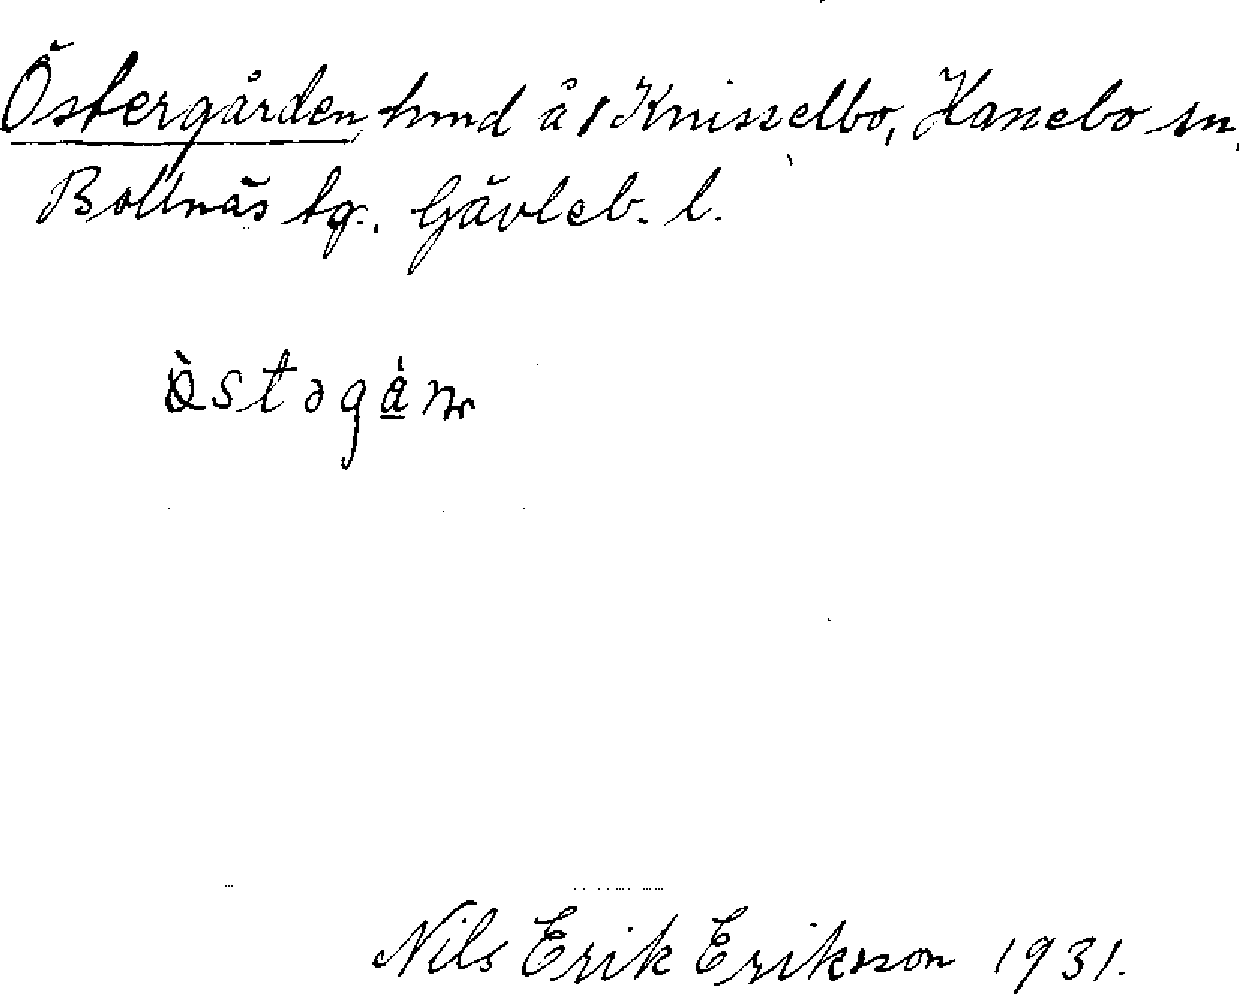 Östergården, hmd å 1 Knisselbo, Hanebo sn,
Bollnäs tg. Gävleb. l.
Nils Erik Eriksson 1931.